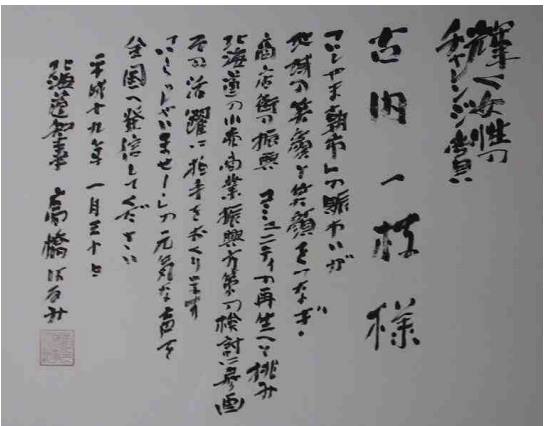 輝く女性の
チャレンジ賞
古内一枝様
「いしやま朝市」の賑わいが
地域の笑顔と笑顔をつなぎ
商店街の振興 コミュニティの再生へと挑み
北海道の小売商業振興方策の検討に参画
その活躍に拍手をおくります
「いらっしゃいませ!」の元気な声を
全国へ発信してください
平成十九年 一月三十日
北海道知事 高橋はるみ